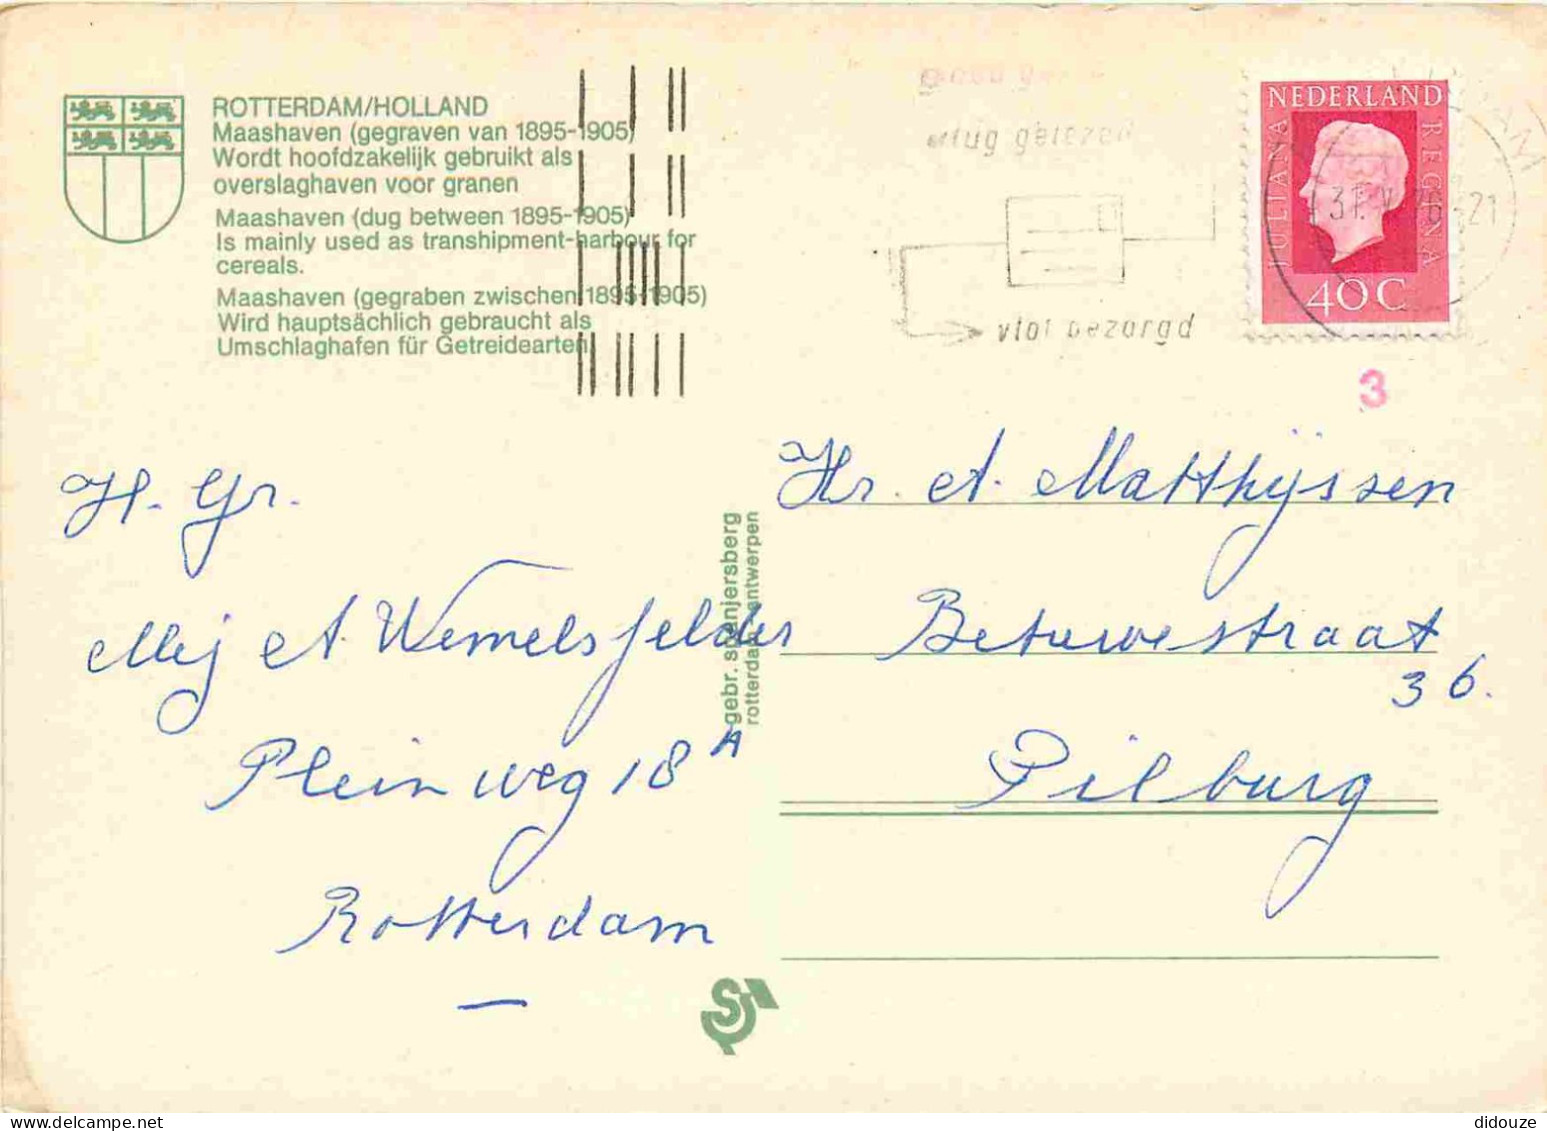 ROTTERDAM/HOLLAND
Maashaven (gegraven van 1895-1905)
Wordt hoofdzakelijk gebruikt als
overslaghaven voor granen
Maashaven (dug between 1895-1905)
Is mainly used as transhipment-harbour for
cereals.
Maashaven (gegraben zwischen 1895-1905)
Wird hauptsächlich gebraucht als
Umschlaghafen für Getreidearten
vlug gelezen
vlot bezorgd
NEDERLAND
JULIANA
REGINA
40C
31.V.76-21
3
H. Gr.
Mej A. Wemelsfelder
Pleinweg 18A
Rotterdam
gebr. spanjersberg
rotterdam-antwerpen
Hr. A. Matthijssen
Betuwestraat
36.
Tilburg
didouze